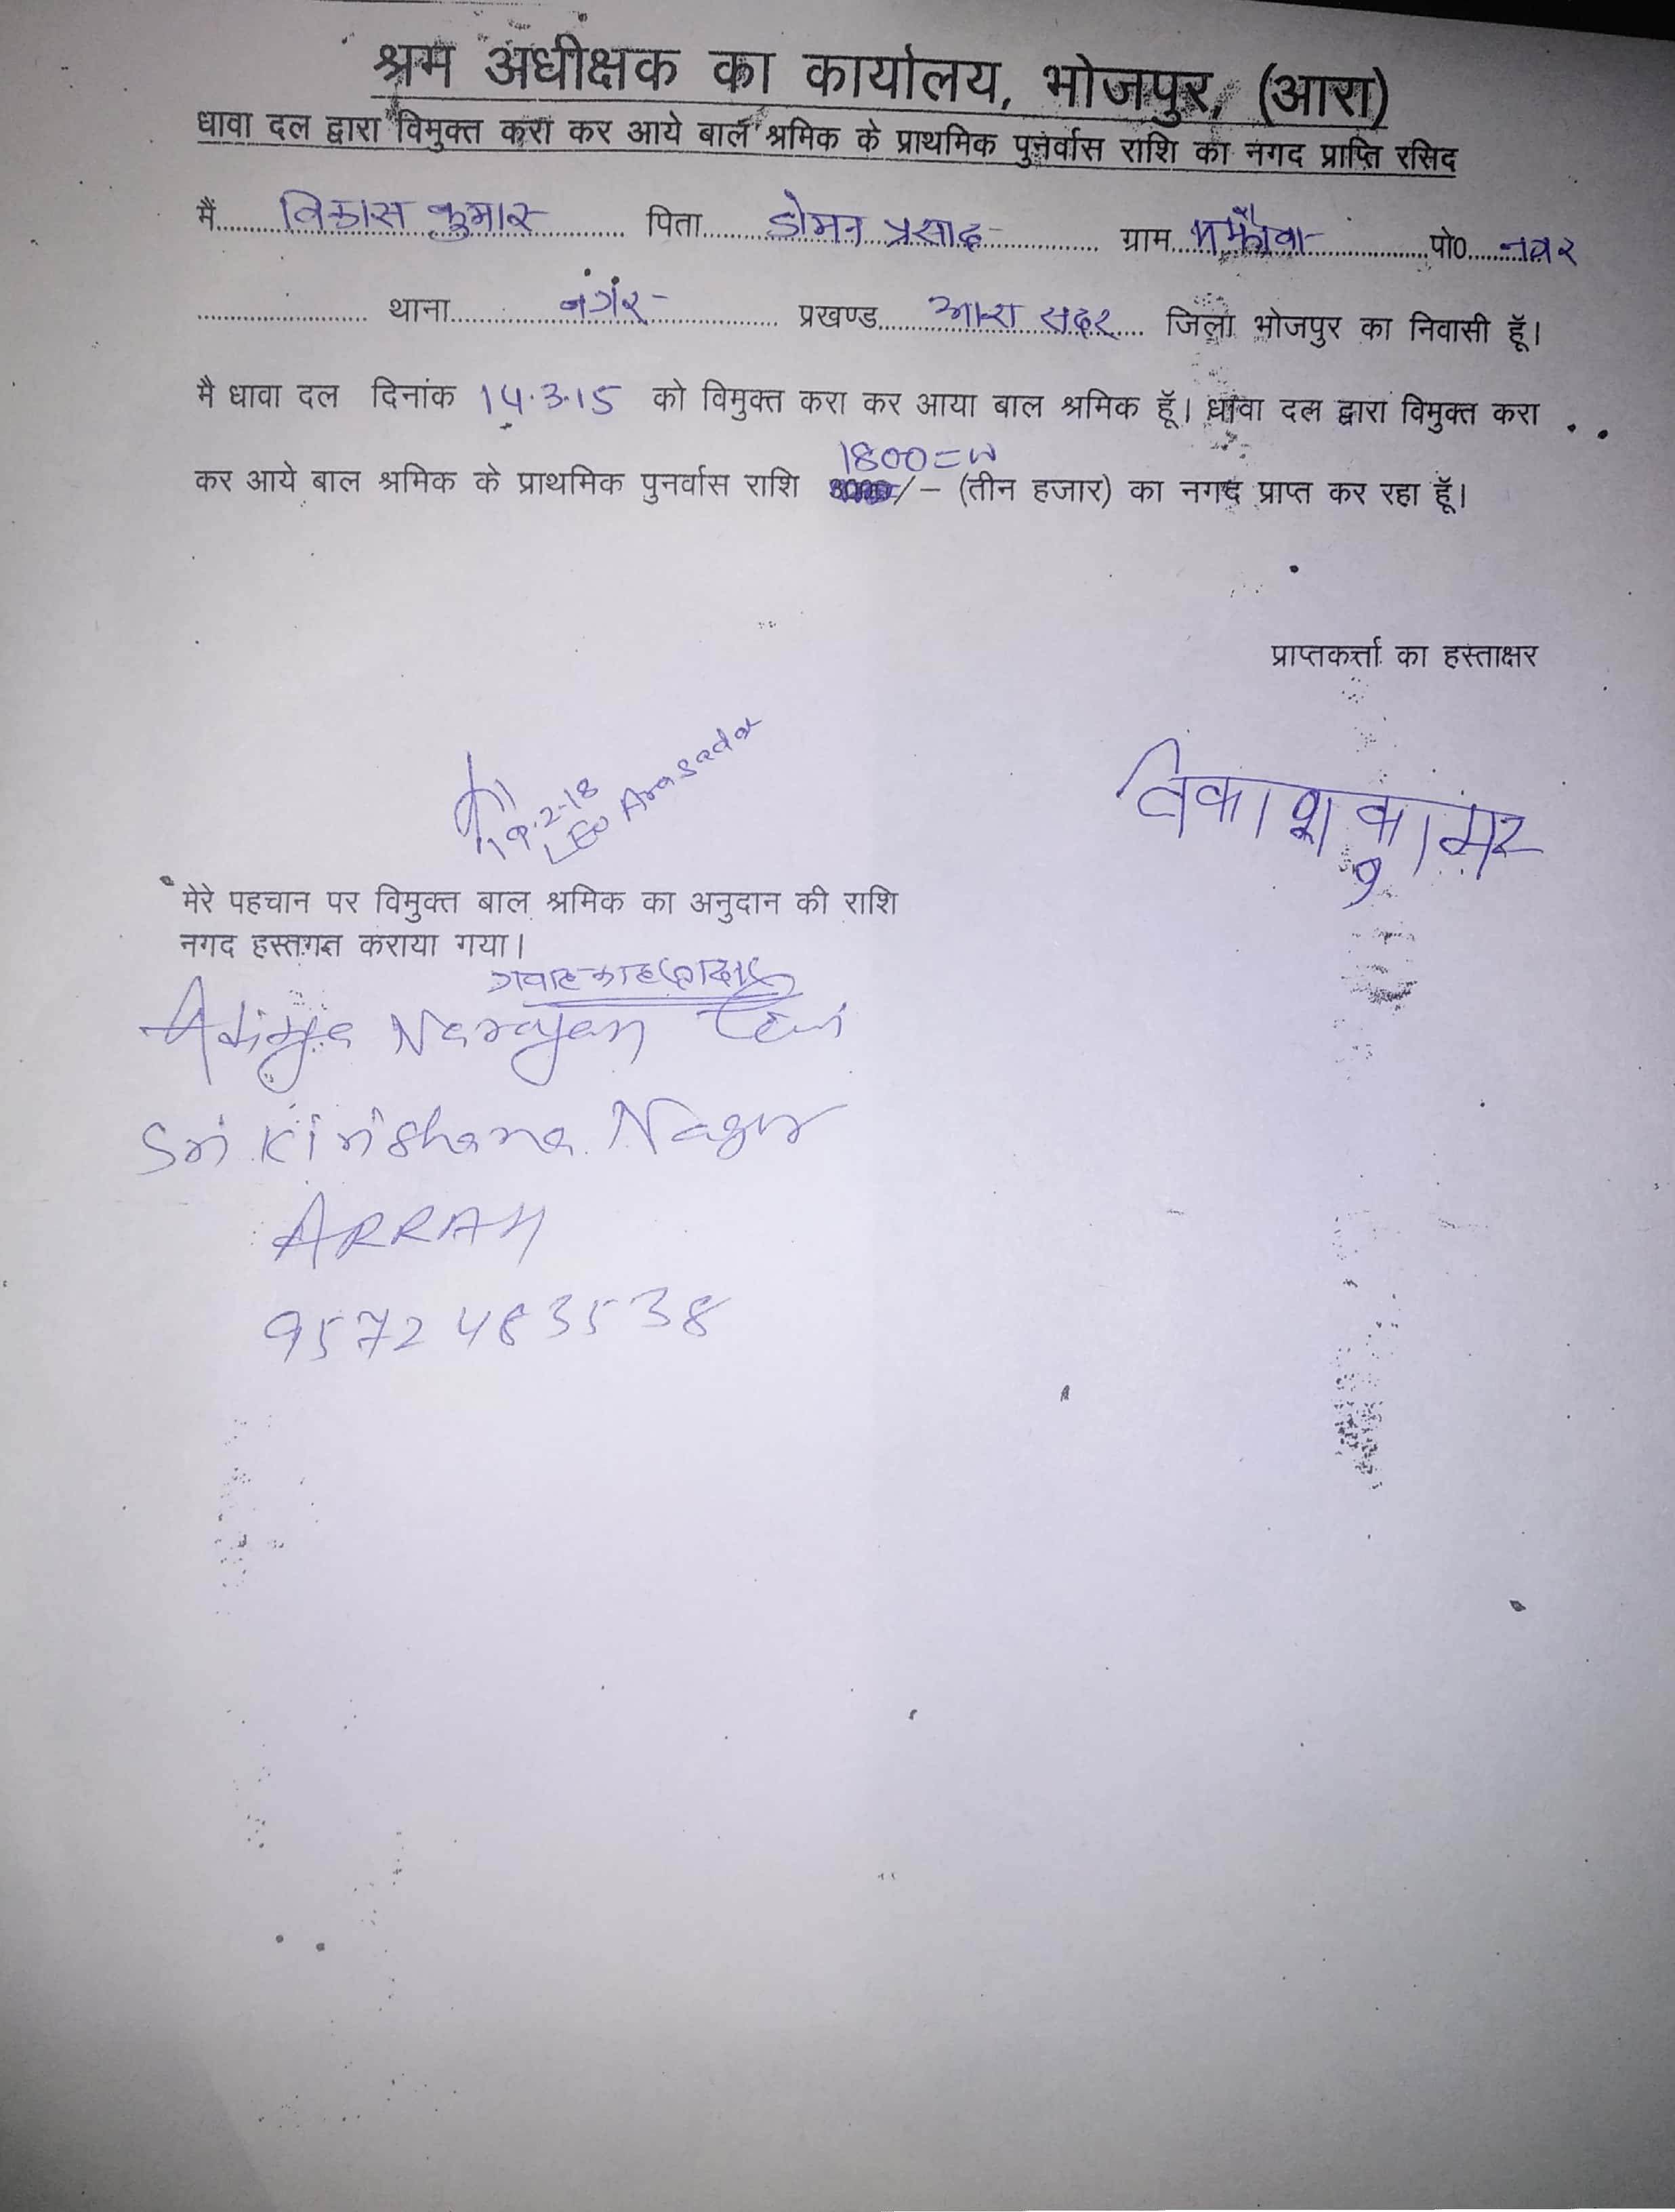 श्रम अधीक्षक का कार्यालय, भोजपुर, (आरा)
धावा दल द्वारा विमुक्त करा कर आये बाल श्रमिक के प्राथमिक पुनर्वास राशि का नगद प्राप्ति रसिद
मैं......विकास कुमार...... पिता......डोमन प्रसाद...... ग्राम......मझौवा......पो0......नवर
...................... थाना......नगर...... प्रखण्ड......आरा सदर...... जिला भोजपुर का निवासी हूँ।
मै धावा दल दिनांक 14.3.15 को विमुक्त करा कर आया बाल श्रमिक हूँ। धावा दल द्वारा विमुक्त करा
1800=00
कर आये बाल श्रमिक के प्राथमिक पुनर्वास राशि 3000/– (तीन हजार) का नगद प्राप्त कर रहा हूँ।
प्राप्तकर्त्ता का हस्ताक्षर
19.2.18
LEO Arasadar
विकाश कुमार
मेरे पहचान पर विमुक्त बाल श्रमिक का अनुदान की राशि
नगद हस्तगत कराया गया।
गवाह का
Narayan
Sri Kirishana Nagar
ARRAH
9572483538